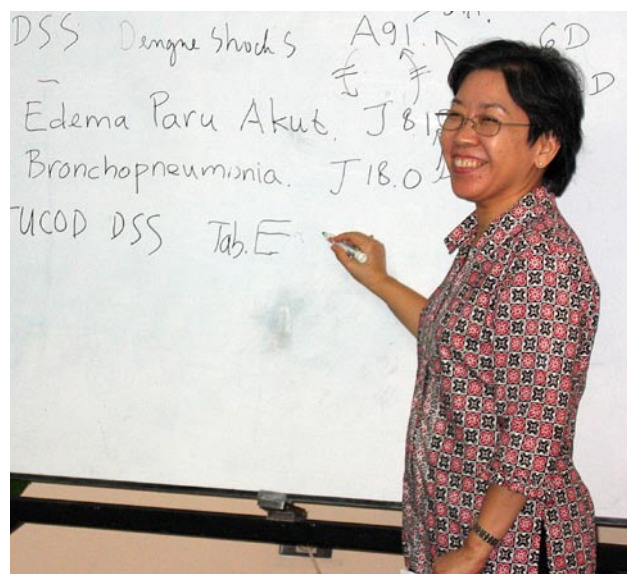 DSS Dengue Shock S A91. 6D
D
Edema Paru Akut. J81
Bronchopneumonia. J18.0
TUCOD DSS Tab.E